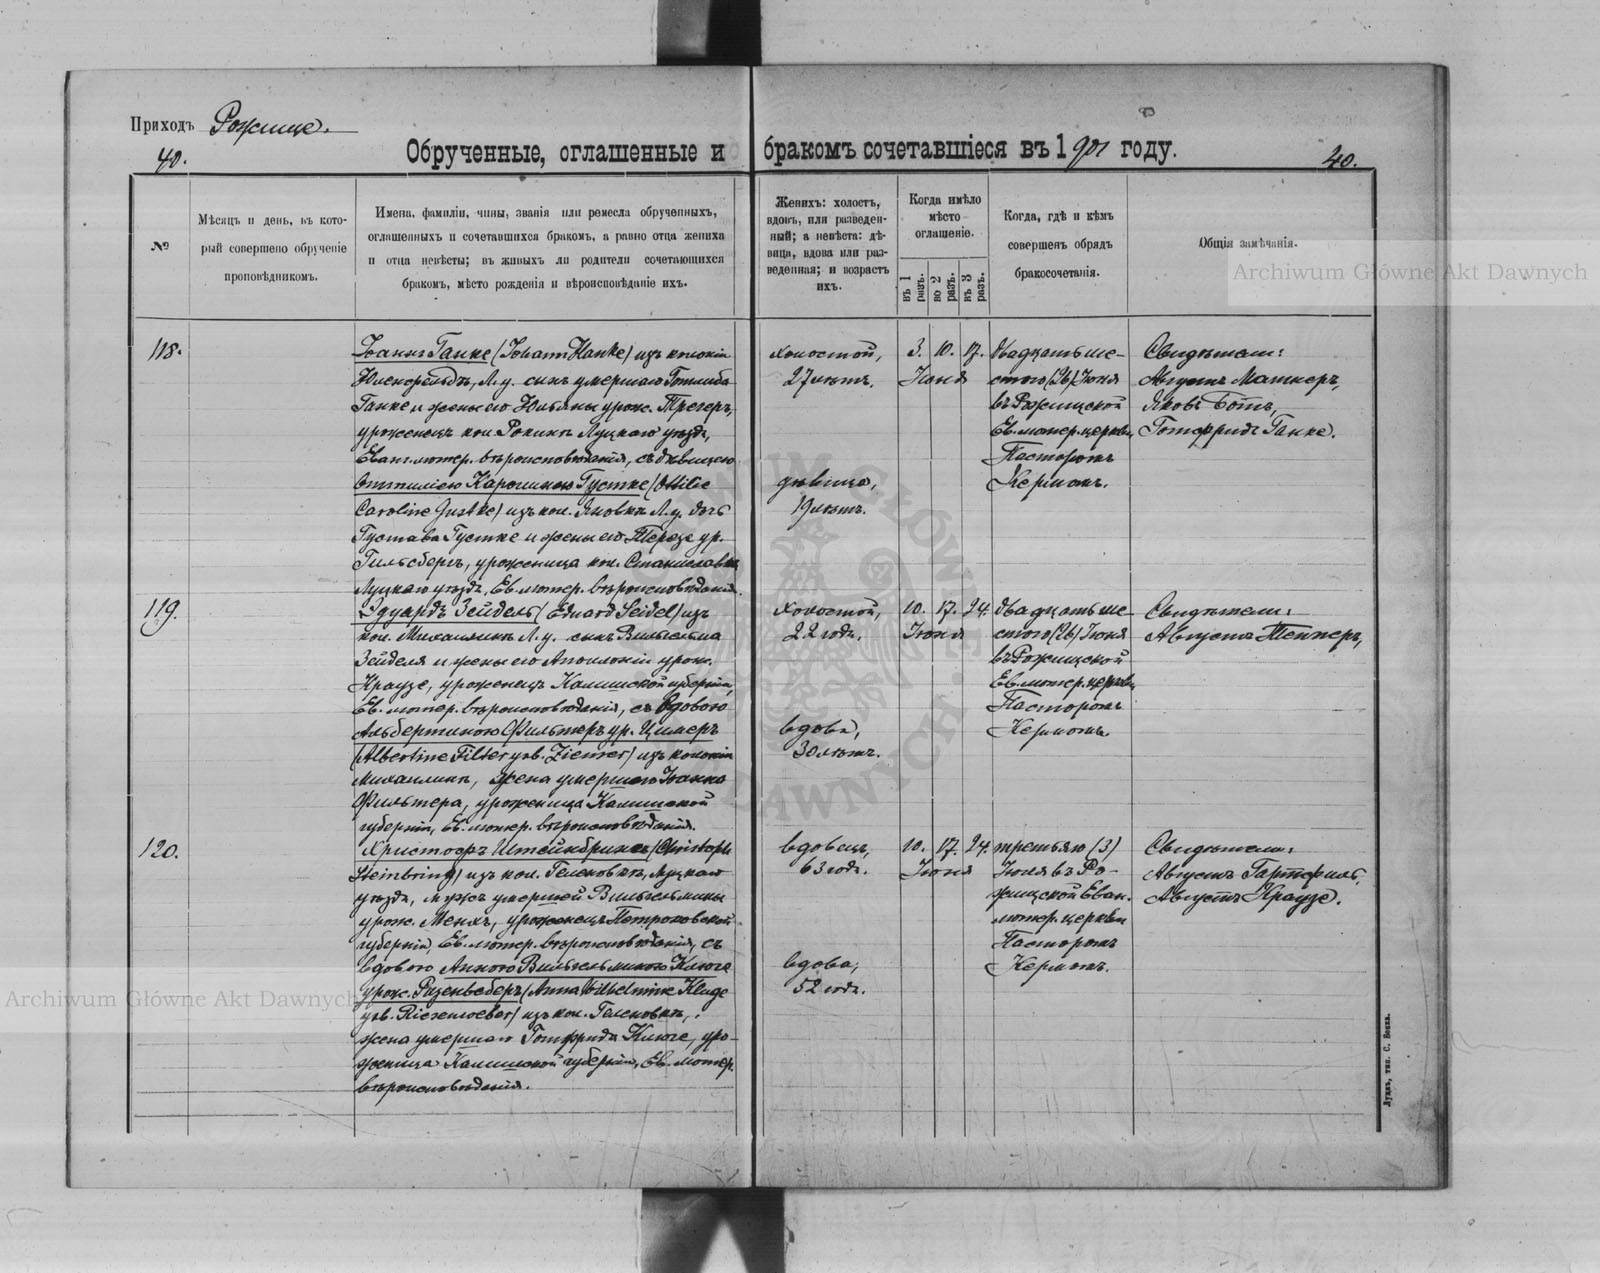 Приходъ Рожище.
40.
Обрученные, оглашенные и бракомъ сочетавшіеся въ 1901 году.
40.
№
Мѣсяцъ и день, въ кото-
рый совершено обрученіе
проповѣдникомъ.
Имена, фамиліи, чины, званія или ремесла обрученныхъ,
оглашенныхъ и сочетавшихся бракомъ, а равно отца жениха
и отца невѣсты; въ живыхъ ли родители сочетающихся
бракомъ, мѣсто рожденія и вѣроисповѣданіе ихъ.
Женихъ: холостъ,
вдовъ, или разведен-
ный; а невѣста: дѣ-
вица, вдова или раз-
веденная; и возрастъ
ихъ.
Когда имѣло
мѣсто
оглашеніе.
въ 1 разъ.
во 2 разъ.
въ 3 разъ.
Когда, гдѣ и кѣмъ
совершенъ обрядъ
бракосочетанія.
Общія замѣчанія.
Archiwum Główne Akt Dawnych
118.
Іоаннъ Ганке (Johann Hanke) изъ колоніи
Л. у. сынъ умершаго Готлиба
Ганке и жены его Юльяны урож. Трегеръ,
уроженецъ кол. Рокини Луцкаго уѣзда,
Еванг. лютер. вѣроисповѣданія, съ дѣвицею
Оттилiею Каролиною Густке (Ottilie
Caroline Gustke) изъ кол. Яновки Л. у. дочь
Густава Густке и жены его Терезе ур.
Гильсбергъ, уроженица кол. Станиславки
Луцкаго уѣзда, Ев. лютер. вѣроисповѣданія.
холостой,
27 лѣтъ.
дѣвица,
19 лѣтъ.
3. 10. 17.
Іюня
двадцать ше-
стого (26) Іюня
въ Рожищской
Ев. лютер. церкви
Пасторомъ
Керномъ.
Свидѣтели:
Августъ Маткеръ,
Яковъ Ботъ,
Готфридъ Ганке.
119.
Эдуардъ Зейдель (Eduard Seidel) изъ
кол. Михалинки Л. у. сынъ Вильгельма
Зейделя и жены его Аполоніи урож.
Краузе, уроженецъ Калишской губерніи,
Ев. лютер. вѣроисповѣданія, съ вдовою
Альбертиною Фильтеръ ур. Цимеръ
(Albertine Filter geb. Ziemer) изъ колоніи
Михалинки, жена умершаго Іоанна
Фильтера, уроженица Калишской
губерніи, Ев. лютер. вѣроисповѣданія.
холостой,
22 года.
вдова,
30 лѣтъ.
10. 17. 24.
Іюня
двадцать ше-
стого (26) Іюня
въ Рожищской
Ев. лютер. церкви
Пасторомъ
Керномъ.
Свидѣтели:
Августа Темперъ,
120.
Христофъ Штейнбринкъ (Christoph
Steinbring) изъ кол. Геленовки, Луцкаго
уѣзда, мужъ умершей Вильгельмины
урож. Менхъ, уроженецъ Петроковской
губерніи, Ев. лютер. вѣроисповѣданія, съ
вдовою Анною Вильгельминою Клюге
урож. Ризенвеберъ (Anna Wilhelmine Kluge
geb. Riesenweber) изъ кол. Геленовки,
жена умершаго Готфрида Клюге, уро-
женица Калишской губерніи, Ев. лютер.
вѣроисповѣданія.
вдовецъ,
63 года.
вдова,
52 года.
10. 17. 24.
Іюня
третьяго (3)
Іюля въ Ро-
жищской Еван.
лютер. церкви
Пасторомъ
Керномъ.
Свидѣтели:
Августъ
Августъ Краузе.
Archiwum Główne Akt Dawnych
Луцкъ, тип. С. Бонка.